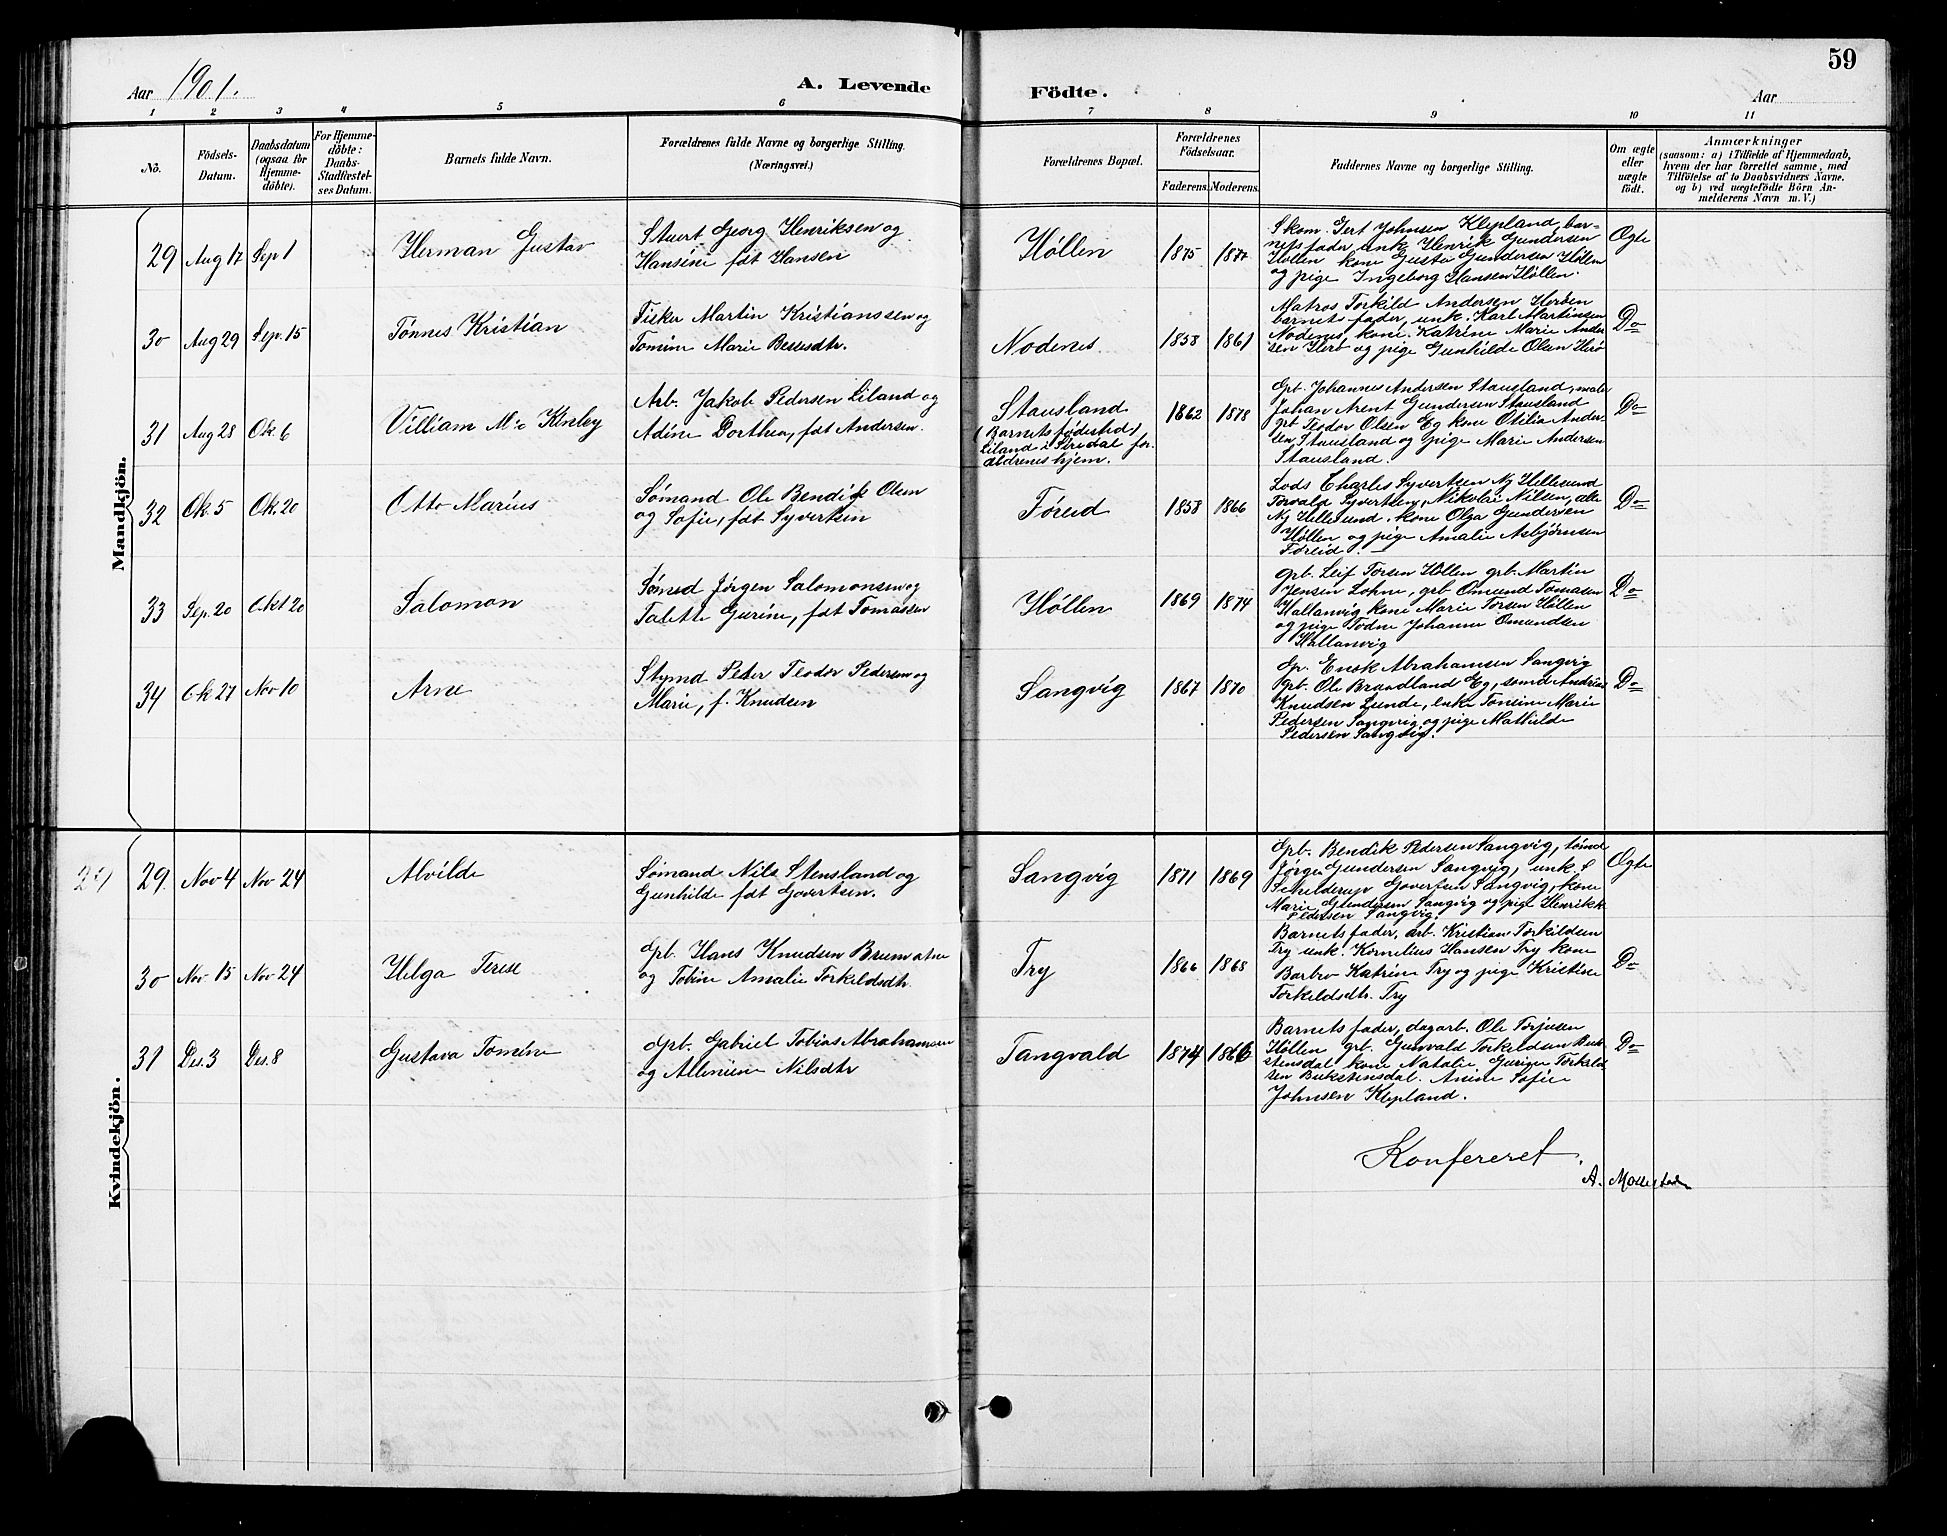 59
Aar 1901.
A. Levende Födte.
Aar
1 2 3 4 5 6 7 8 9 10 11
No.
Födsels-Datum.
Daabsdatum (ogsaa for Hjemme-döbte).
For Hjemme-döbte: Daabs-Stadfæstel-ses Datum.
Barnets fulde Navn.
Forældrenes fulde Navne og borgerlige Stilling. (Næringsvei.)
Forældrenes Bopæl.
Forældrenes Födselsaar.
Faderens. Moderens.
Faddernes Navne og borgerlige Stilling.
Om ægte eller uægte födt.
Anmærkninger
(saasom: a) i Tilfælde af Hjemmedaab,
hvem der har forrettet samme, med
Tilföielse af to Daabsvidners Navne,
og b) ved uægtefödte Börn An-
melderens Navn m. V.)
Mandkjön.
29 Aug 17 Sep 1
Herman Gustav
Stuert Georg Henriksen og
Hansine fdt Hansen
Høllen
1875 1877
Skom. Gert Johnsen Klepland, bar-
nets fader, unk Henrik Gundersen
Høllen kone Gusta Gundersen Høllen
og pige Ingeborg Hansen Høllen.
Ægte
30 Aug 29 Sep. 15
Tønnes Kristian
Fisker Martin Kristianssen og
Tomine Marie Bessesdtr.
Nodenes
1858 1861
Matros Torkild Andersen Herøen
barnets fader, unk. Karl Martinsen
Nodenes, kone Katrine Marie Ander
sen Herø og pige Gunhilde Olsen Herø
Do
31 Aug 28 Ok. 6
Villiam Mc Kinley
Arb. Jakob Pedersen Liland og
Adine Dorthea, fdt Andersen.
Stausland
(Barnets fødested)
Liland i Siredal for-
ældrenes hjem.
1862 1878
Gpb. Johannes Andersen Stausland, maler
Johan Arent Gundersen Stausland
grb Teodor Olsen Eg kone Otilia Ander-
sen Stausland og pige Marie Andersen
Stausland.
Do
32 Ok. 5 Ok. 20
Otto Marius
Sømand Ole Bendik Olsen
og Sofie, fdt Syvertsen
Føreid
1858 1866
Lods Charles Syvertsen Ny Hellesund
Torvald Syvertsen, Nikolai Nilsen, alle
Ny Hellesund. kone Olga Gundersen
Høllen og pige Amalie Asbjørnsen
Føreid.
Do
33 Sep. 20 Okt 20
Salomon
Sømd Jørgen Salomonsen og
Talette Gurine, fdt Tomassen
Høllen
1869 1874
Gpb. Leif Torsen Høllen grb. Martin
Jensen Lohne, grb Omund Tomasen
Hallanvig kone Marie Torsen Høllen
og pige Todne Johanne Omundsen
Hallanvig
Do
34 Ok 27 Nov 10
Arne
Stymd Peder Teodor Pedersen og
Marie, f. Knudsen
Sangvig
1867 1870
Gp. Enok Abrahamsen Sangvig
Gpb. Ole Braadland Eg, sømd Andreas
Knudsen Lunde, enke Tomine Marie
Pedersen Sangvig og pige Mathilde
Pedersen Sangvig.
Do
Kvindekjön.
29. Nov 4 Nov 24
Alvilde
Sømand Nils Stensland og
Gunhilde fdt Govertsen.
Sangvig
1871 1869
Gpb. Bendik Pedersen Sangvig, sømd
Jørgen Gundersen Sangvig, unk. S
Schelderup Govertsen Sangvig, kone
Marie Gundersen Sangvig og pige Henrikke
Pedersen Sangvig.
Ægte
30 Nov 15 Nov 24
Helga Terese
Gpb. Hans Knudsen Brunvatne
og Tobine Amalie Torkeldsdtr.
Try
1866 1868
Barnets fader, arb. Kristian Torkildsen
Try unk. Kornelius Hansen Try kone
Barbro Katrine Try og pige Kristine
Torkeldsdtr. Try
Do
31 Des. 3 Des. 8
Gustava Tomine
Gpb. Gabriel Tobias Abrahamsen
og Nilsdtr
Tangvald
1874 1866
Barnets fader, dagarb. Ole Terjesen
Høllen grb. Gunvald Torkeldsen Buk-
stensdal kone Natalie Torkild
sen Bukstensdal. Anine Sofie
Johnsen Klepland.
Do
Konfereret.
A. Mollestad